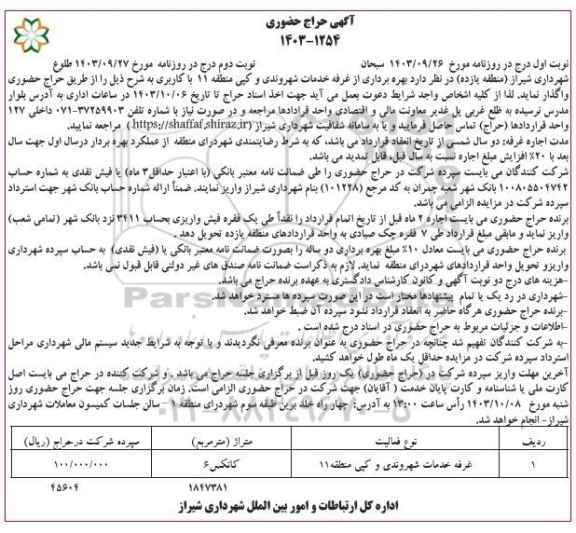 آگهی حراج حضوری
۱۴۰۳-۱۲۵۴
نوبت اول درج در روزنامه مورخ ۱۴۰۳/۰۹/۲۶ سبحان نوبت دوم درج در روزنامه مورخ ۱۴۰۳/۰۹/۲۷ طلوع
شهرداری شیراز (منطقه یازده) در نظر دارد بهره برداری از غرفه خدمات شهروندی و کپی منطقه ۱۱ با کاربری به شرح ذیل را از طریق حراج حضوری
واگذار نماید. لذا از کلیه اشخاص واجد شرایط دعوت بعمل می آید جهت اخذ اسناد حراج تا تاریخ ۱۴۰۳/۱۰/۰۶ در ساعات اداری به آدرس بلوار
مدرس نرسیده به ضلع غربی پل غدیر معاونت مالی و اقتصادی واحد قراردادها مراجعه و در صورت نیاز با شماره تلفن ۳۷۲۵۹۹۰۳-۰۷۱ داخلی ۱۲۷
واحد قراردادها (حراج) تماس حاصل فرمایید و یا به سامانه شفافیت شهرداری شیراز (https://shaffaf.shiraz.ir) مراجعه نمایید.
مدت اجاره غرفه: دو سال شمسی از تاریخ انعقاد قرارداد می باشد، که به شرط رضایتمندی شهردرای منطقه از عملکرد بهره بردار درسال اول جهت سال
بعد با ۲۰٪ افزایش مبلغ اجاره نسبت به سال قبل، قابل تمدید می باشد.
شرکت کنندگان می بایست سپرده شرکت در حراج حضوری را طی ضمانت نامه معتبر بانکی (با اعتبار حداقل۳ ماه) یا فیش نقدی به شماره حساب
۱۰۰۸۰۵۵۰۴۷۴۲ بانک شهر شعبه چمران به کد مرجع (۱۰۱۲۲۸) بنام شهرداری شیراز واریز نمایند. ضمناً ارائه شماره حساب بانک شهر جهت استرداد
سپرده شرکت در مزایده الزامی می باشد.
برنده حراج حضوری می بایست اجاره ۲ ماه قبل از تاریخ اتمام قرارداد را نقداً طی یک فقره فیش واریزی بحساب ۳۴۱۱ نزد بانک شهر (تمامی شعب)
واریز نماید و مابقی مبلغ قرارداد طی ۷ فقره چک صیادی به واحد قراردادهای منطقه یازده تحویل دهد .
برنده حراج حضوری می بایست معادل ۱۰٪ مبلغ بهره برداری دو ساله را بصورت ضمانت نامه معتبر بانکی یا (فیش نقدی) به حساب سپرده شهرداری
واریزو تحویل واحد قراردادهای شهردرای منطقه نماید. لازم به ذکراست ضمانت نامه صندق های غیر دولتی قابل قبول نمی باشد.
-هزینه های درج دو نوبت آگهی و کانون کارشناس دادگستری به عهده برنده حراج می باشد.
-شهرداری در رد یک یا تمام پیشنهادها مختار است در این صورت سپرده ها مسترد خواهد شد.
-برنده حراج حضوری هرگاه حاضر به انعقاد قرارداد نشود سپرده آن ضبط خواهد شد.
-اطلاعات و جزئیات مربوط به حراج حضوری در اسناد درج شده است .
-به شرکت کنندگان تفهیم شد چنانچه در حراج حضوری به عنوان برنده معرفی نگردیدند و با توجه به شرایط جدید سیستم مالی شهرداری مراحل
استرداد سپرده شرکت در مزایده حداقل یک ماه طول خواهد کشید.
آخرین مهلت واریز سپرده شرکت در (حراج حضوری) یک روز قبل از برگزاری جلسه حراج می باشد . و شرکت کننده در حراج می بایست اصل
کارت ملی یا شناسنامه و کارت پایان خدمت ( آقایان) جهت شرکت در حراج حضوری الزامی است. زمان برگزاری جلسه جهت حراج حضوری روز
شنبه مورخ ۱۴۰۳/۱۰/۰۸ رأس ساعت ۱۳:۰۰ به آدرس: چهار راه خلد برین طبقه سوم شهردرای منطقه۱ - سالن جلسات کمیسون معاملات شهرداری
شیراز- انجام خواهد شد.
ردیف نوع فعالیت متراژ (مترمربع) سپرده شرکت درحراج (ریال)
۱ غرفه خدمات شهروندی و کپی منطقه۱۱ کانکس۶ ۱۰۰/۰۰۰/۰۰۰
۱۸۴۷۳۸۱ ۴۵۶۰۴
اداره کل ارتباطات و امور بین الملل شهرداری شیراز